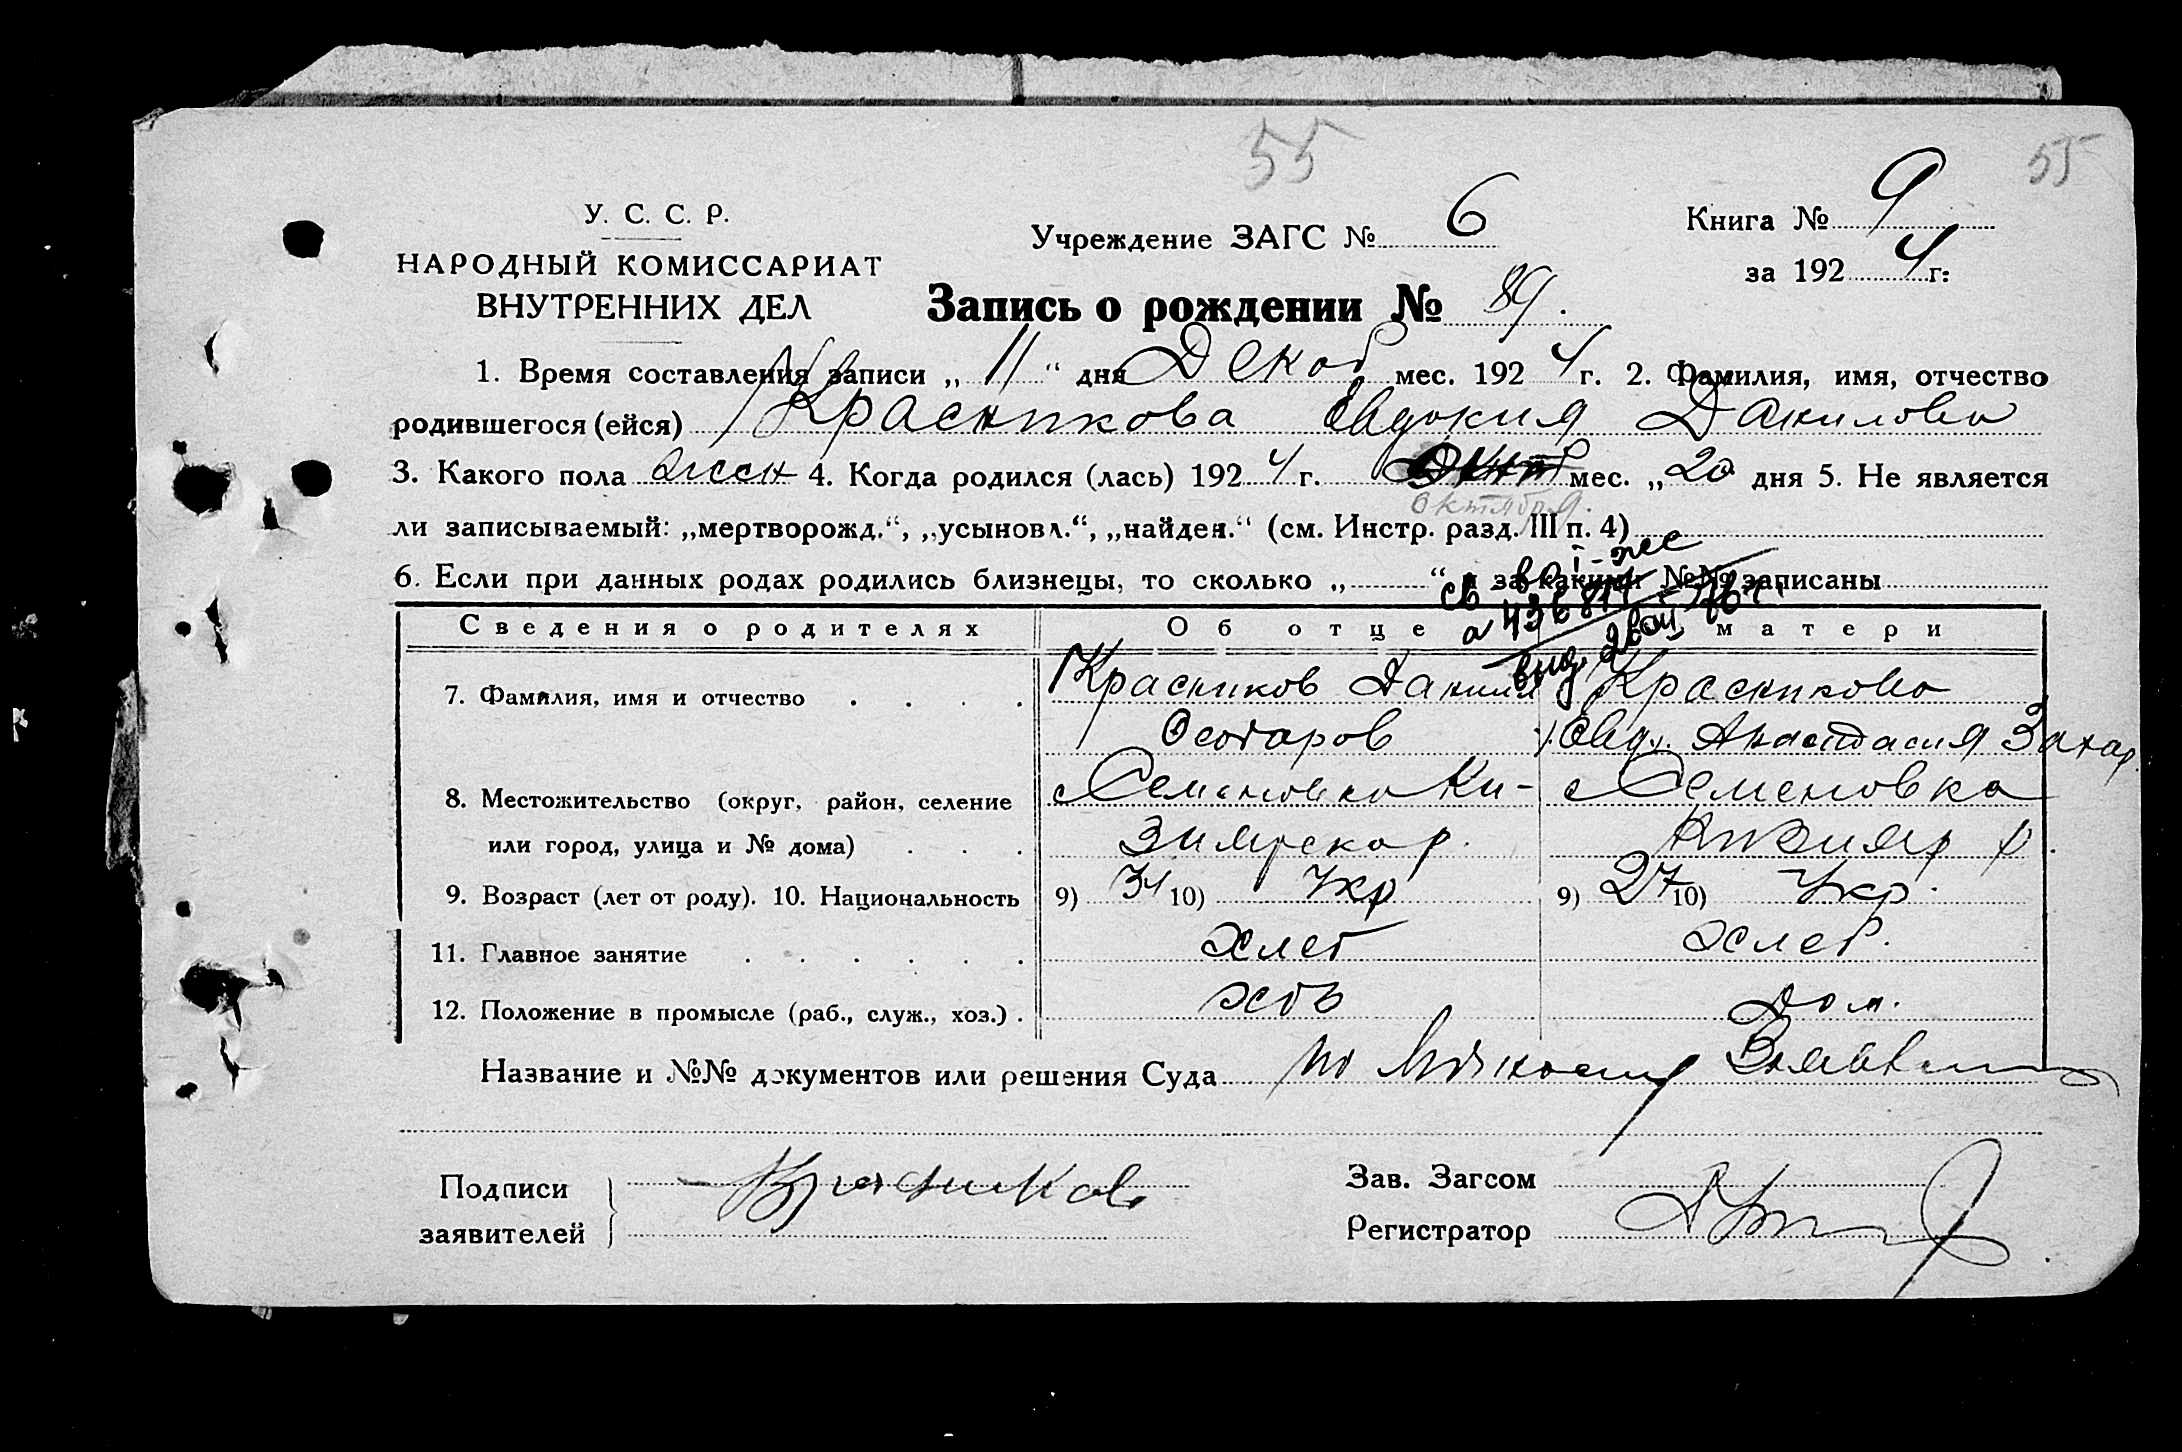 55
55
У. С. С. Р.
НАРОДНЫЙ КОМИССАРИАТ
ВНУТРЕННИХ ДЕЛ
Учреждение ЗАГС № 6
Книга № 9
за 1924 г.
Запись о рождении № 89.
1. Время составления записи „ 11 “ дня Декаб мес. 1924 г. 2. Фамилия, имя, отчество
родившегося (ейся) Красникова Евдокия Данилова
3. Какого пола жен 4. Когда родился (лась) 1924 г. Окт мес. „20 дня 5. Не является
октября.
ли записываемый: „мертворожд.“, „усыновл.“, „найден.“ (см. Инстр. разд. III п. 4)
6. Если при данных родах родились близнецы, то сколько „ “ и за какими №№ записаны
Сведения о родителях Об отце матери
7. Фамилия, имя и отчество Красников Данил Красникова
Анастасия Захар.
8. Местожительство (округ, район, селение с Семеновка Ки- с Семеновка
или город, улица и № дома) зиярскаг р. Кизияр р.
9. Возраст (лет от роду). 10. Национальность 9) 31 10) Укр 9) 27 10) Укр.
11. Главное занятие хлеб хлеб.
12. Положение в промысле (раб., служ., хоз.) дом.
Название и №№ документов или решения Суда по
Подписи
заявителей Красников
Зав. Загсом
Регистратор